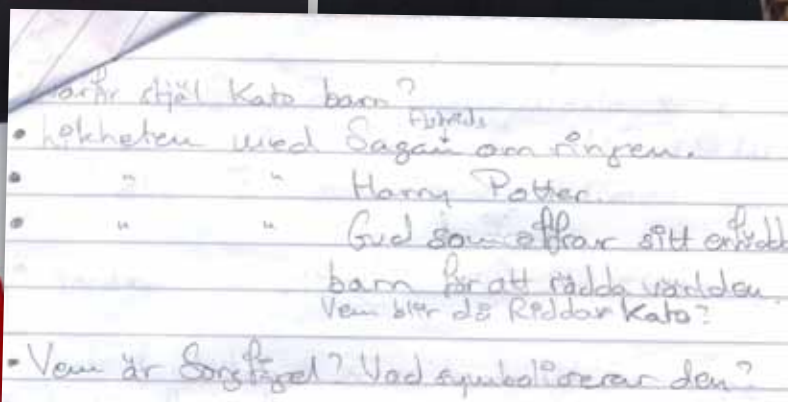 stjäl Kato barn?
Astrids
• Likheten med Sagan om ringen.
• " " Harry Potter.
• " " Gud som offrar sitt enfödda
barn för att rädda världen.
Vem blir då Riddar Kato?
• Vem är Sorgfågel? Vad symboliserar den?